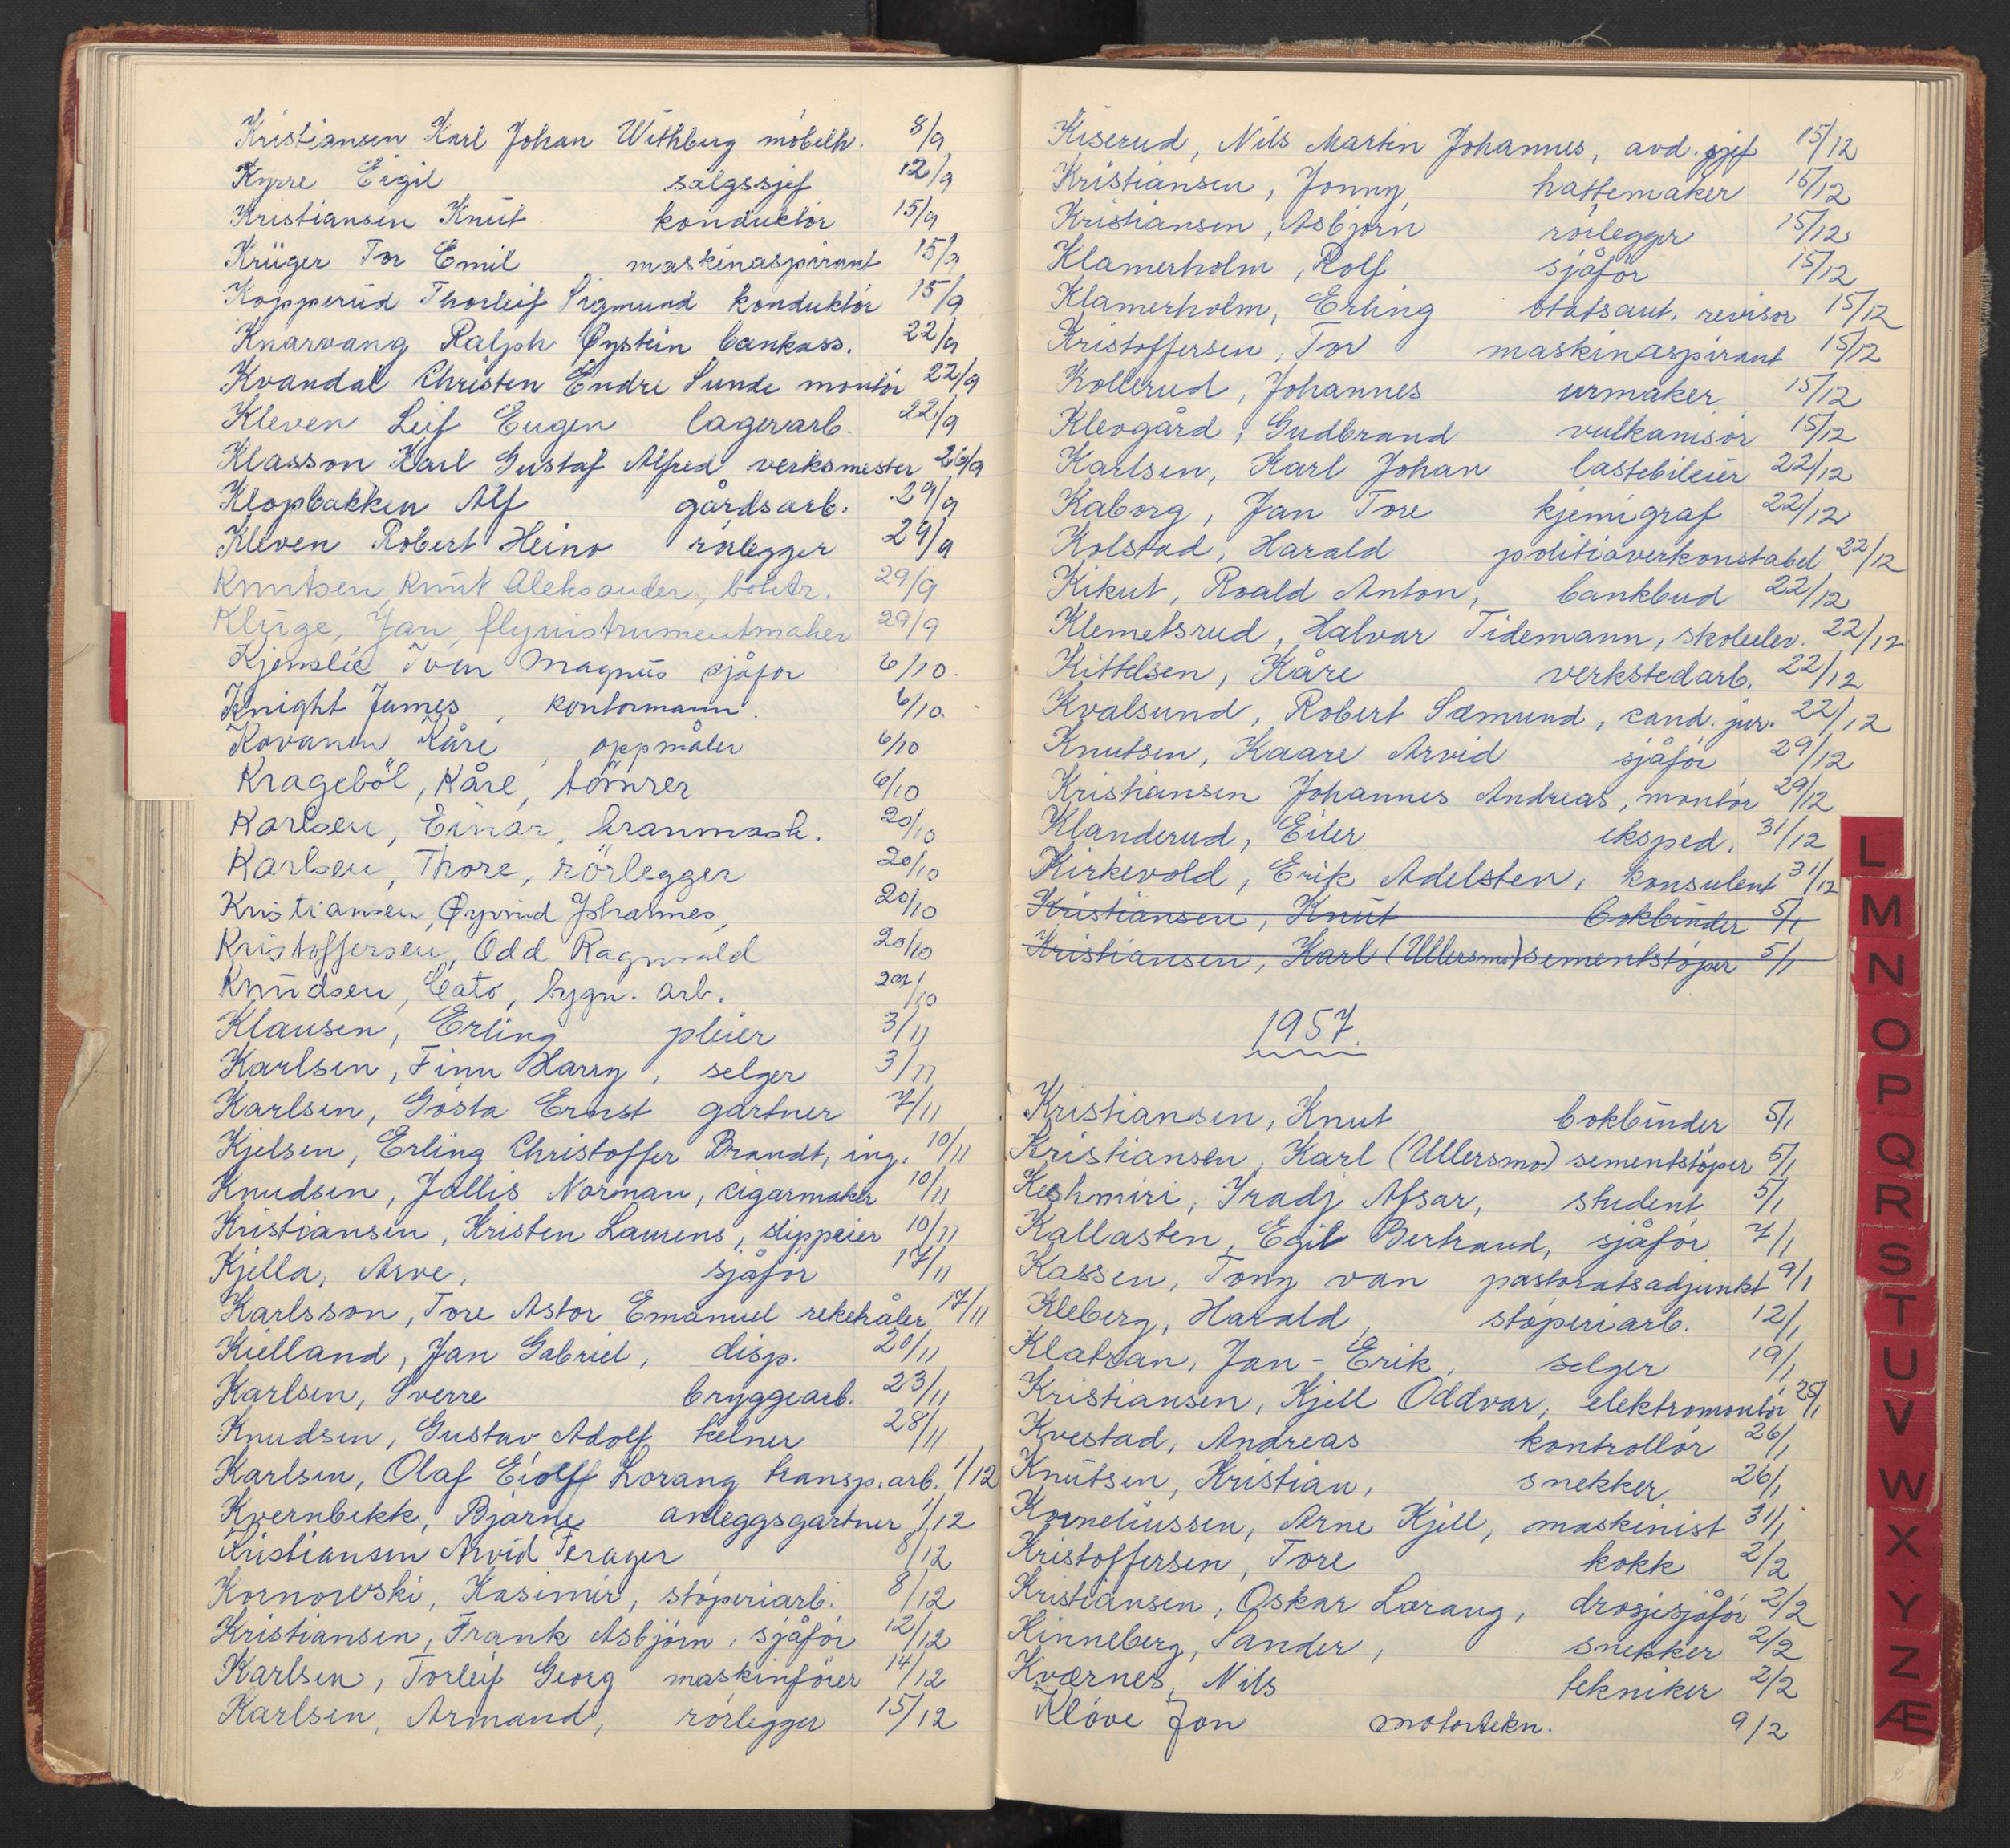 Kristiansen Karl Johan Withbug møbelh. 8/9
Kyrre Eigil salgssjef 12/9
Kristiansen Knut konduktör 15/9
Krüger Tor Emil maskinaspirant 15/9
Kopperud Thorleif Sigmund konduktör 15/9
Knarvang Ralph Øystein bankass. 22/9
Kvandal Christen Endre Sunde montör 22/9
Kleven Leif Eugen lagerarb. 22/9
Klasson Karl Gustaf Alfred verksmester 26/9
Klopbakken Alf gårdsarb. 29/9
Kleven Robert Heino rörlegger 29/9
Knutsen, Knut Aleksander, boktr. 29/9
Kluge, Jan, flyinstrumentmaker 29/9
Kjenslie Iver Magnus sjåfør 6/10.
Knight James, kontormann. 6/10.
Kovanen Kåre, oppmåler 6/10
Krageböl, Kåre, tömrer 6/10
Karlsen, Einar, kranmask. 20/10
Karlsen, Thore, rörlegger 20/10
Kristiansen, Øyvind Johannes, 20/10
Kristoffersen, Odd Ragnvald 20/10
Knudsen, Cato, bygn. arb. /10
Klausen, Erling pleier 3/11
Karlsen, Finn Harry, selger 3/11
Karlsen, Gösta Ernst gartner 7/11
Kjelsen, Erling Christoffer Brandt, ing. 10/11
Knudsen, Jallis Norman, sigarmaker 10/11
Kristiansen, Kristen Laurens, slippeier 10/11
Kjella, Arve, sjåfør 17/11
Karlsson, Tore Astor Emanuel reketråler 17/11
Kielland, Jan Gabriel, disp. 20/11
Karlsen, Sverre bryggearb. 23/11
Knudsen, Gustav Adolf kelner 28/11
Karlsen, Olaf Eiolf Lorang transp.arb. 1/12
Kvernbekk, Bjarne anleggsgartner 1/12
Kristiansen Arvid Terager 8/12
Kornowski, Kasimir, støperiarb. 8/12
Kristiansen, Frank Asbjörn, sjåför 12/12
Karlsen, Torleif Georg maskinförer 14/12
Karlsen, Armand, rörlegger 15/12
Kiserud, Nils Martin Johannes, avd. sjef 15/12
Kristiansen, Jonny, hattemaker 15/12
Kristiansen, Asbjörn rörlegger 15/12
Klamerholm, Rolf sjåför 15/12
Klamerholm, Erling statsaut. revisor 15/12
Kristoffersen, Tor maskinaspirant 15/12
Kollerud, Johannes urmaker 15/12
Klevgård, Gudbrand vulkanisör 15/12
Karlsen, Karl Johan lastebileier 22/12
Kaborg, Jan Tore kjemigraf 22/12
Kolstad, Harald politioverkonstabel 22/12
Kikut, Roald Anton, bankbud 22/12
Klemetsrud, Halvar Tidemann, skoleelev. 22/12
Kittelsen, Kåre verkstedarb. 22/12
Kvalsund, Robert Sæmund, cand. jur. 22/12
Knutsen, Kaare Arvid sjåför 29/12
Kristiansen Johannes Andreas, montör 29/12
Klanderud, Eiler eksped. 31/12
Kirkevold, Erik Adelsten, konsulent 31/12
Kristiansen, Knut bokbinder 5/1
Kristiansen, Karl (Ullersmo) sementstöper 5/1
1957.
Kristiansen, Knut bokbinder 5/1
Kristiansen, Karl (Ullersmo) sementstöper 5/1
Keshmiri, Iradj Afsar, student 5/1
Kallasten, Egil Bertrand, sjåför 7/1
Kassen, Tony van pastoratsadjunkt 9/1
Kleberg, Harald, støperiarb. 12/1
Klatran, Jan-Erik, selger 19/1
Kristiansen, Kjell Oddvar, elektromontör 25/1
Kvestad, Andreas kontrollör 26/1
Knutsen, Kristian, snekker 26/1
Korneliussen, Arne Kjell, maskinist 31/1
Kristoffersen, Tore kokk 2/2
Kristiansen, Oskar Lorang, drosjesjåför 2/2
Kinneberg, Sander, snekker 2/2
Kværnes, Nils tekniker 2/2
Kløve Jon motortekn. 9/2
L
M
N
O
P
Q
R
S
T
U
V
W
X
Y
Z
Æ